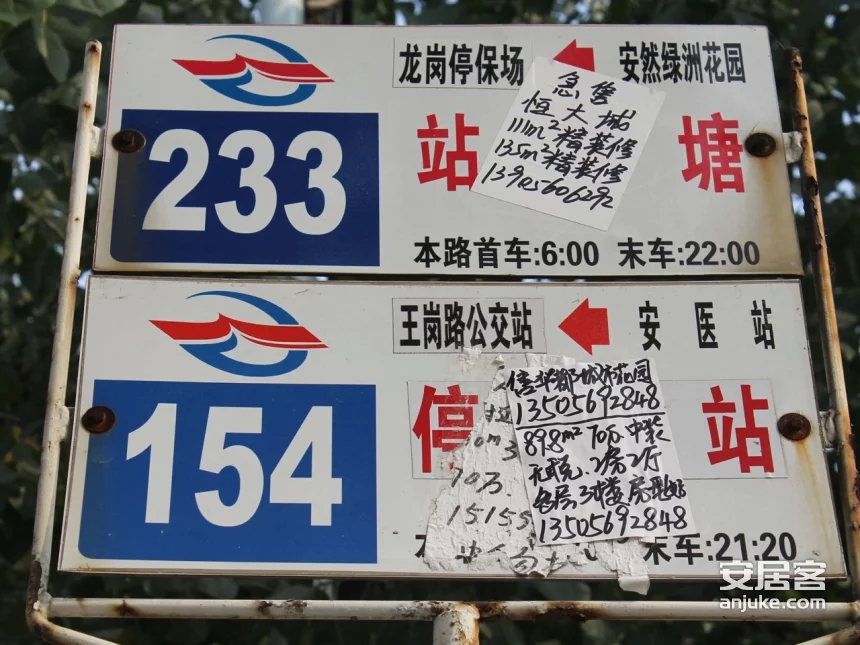 233
龙岗停保场
安然绿洲花园
站
塘
急售
恒大城
111m²精装修
135m²精装修
13905606292
本路首车:6:00 末车:22:00
154
王岗路公交站
安医站
停
站
13505692848
89.8m² 70万 中装
2房2厅
13505692848
70万.
15155
末车:21:20
安居客
anjuke.com